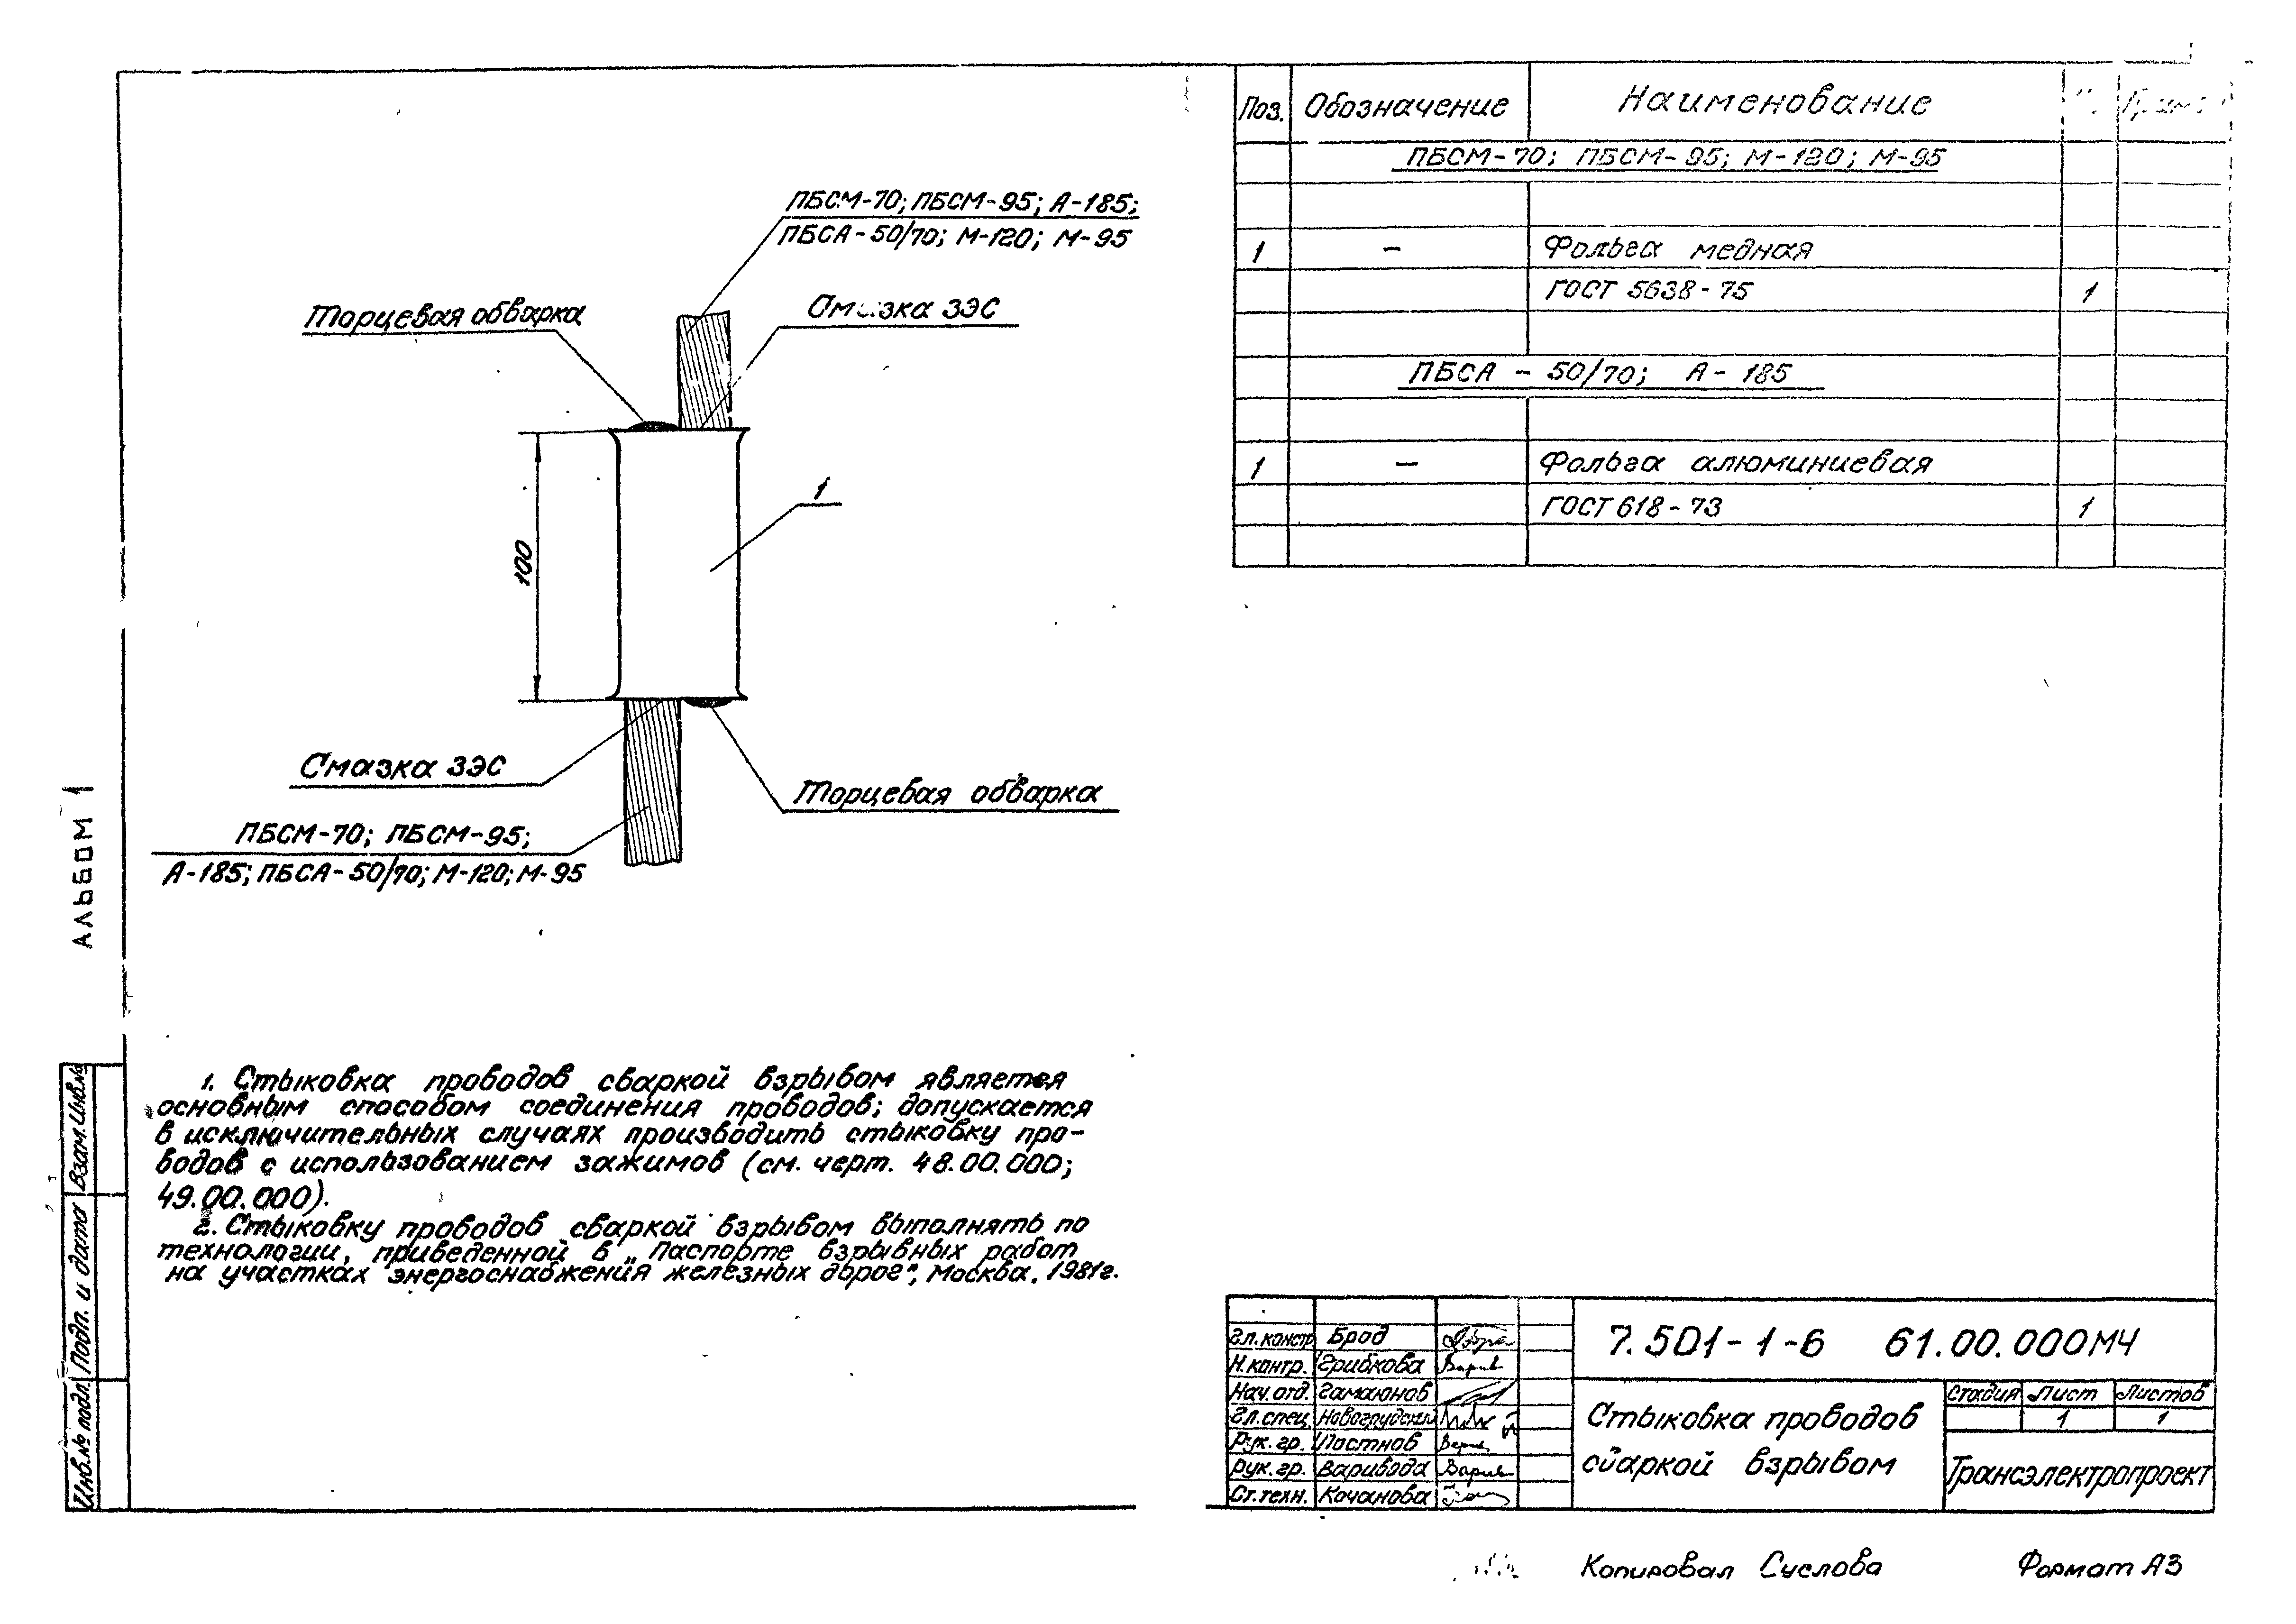 ПБСМ-70; ПБСМ-95; А-185;
ПБСА-50/70; М-120; М-95
Торцевая обварка
Смазка ЗЭС
1
100
Смазка ЗЭС
Торцевая обварка
ПБСМ-70; ПБСМ-95;
А-185; ПБСА-50/70; М-120; М-95
1. Стыковка проводов сваркой взрывом является
основным способом соединения проводов; допускается
в исключительных случаях производить стыковку про-
водов с использованием зажимов (см. черт. 48.00.000;
49.00.000).
2. Стыковку проводов сваркой взрывом выполнять по
технологии, приведенной в „Паспорте взрывных работ
на участках энергоснабжения железных дорог", Москва, 1981г.
Поз. Обозначение Наименование
ПБСМ-70; ПБСМ-95; М-120; М-95
1 – Фольга медная
ГОСТ 5638-75 1
ПБСА - 50/70; А-185
1 – Фольга алюминиевая
ГОСТ 618-73 1
АЛЬБОМ 1
Взам. Инв.№
Подп. и дата
Инв.№ подл.
Гл. констр Брод
Н. контр. Грибкова
Нач. отд. Гамаюнов
Гл. спец. Новогрудский
Рук. гр. Постнов
Рук. гр. Варивода
Ст. техн. Кочанова
7.501-1-6 61.00.000МЧ
Стыковка проводов
сваркой взрывом
Стадия Лист Листов
1 1
Трансэлектропроект
Копировал Суслова Формат А3